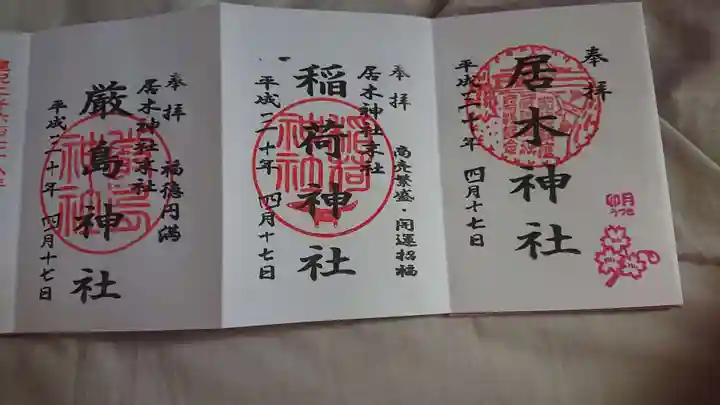 奉拝
居木神社
平成二十七年 四月十七日
卯月
うづき
奉拝
商売繁盛・開運招福
居木神社末社
稲荷神社
稲荷神社
平成二十七年 四月十七日
奉拝
福徳円満
居木神社末社
厳島神社
厳島神社
平成二十七年 四月十七日